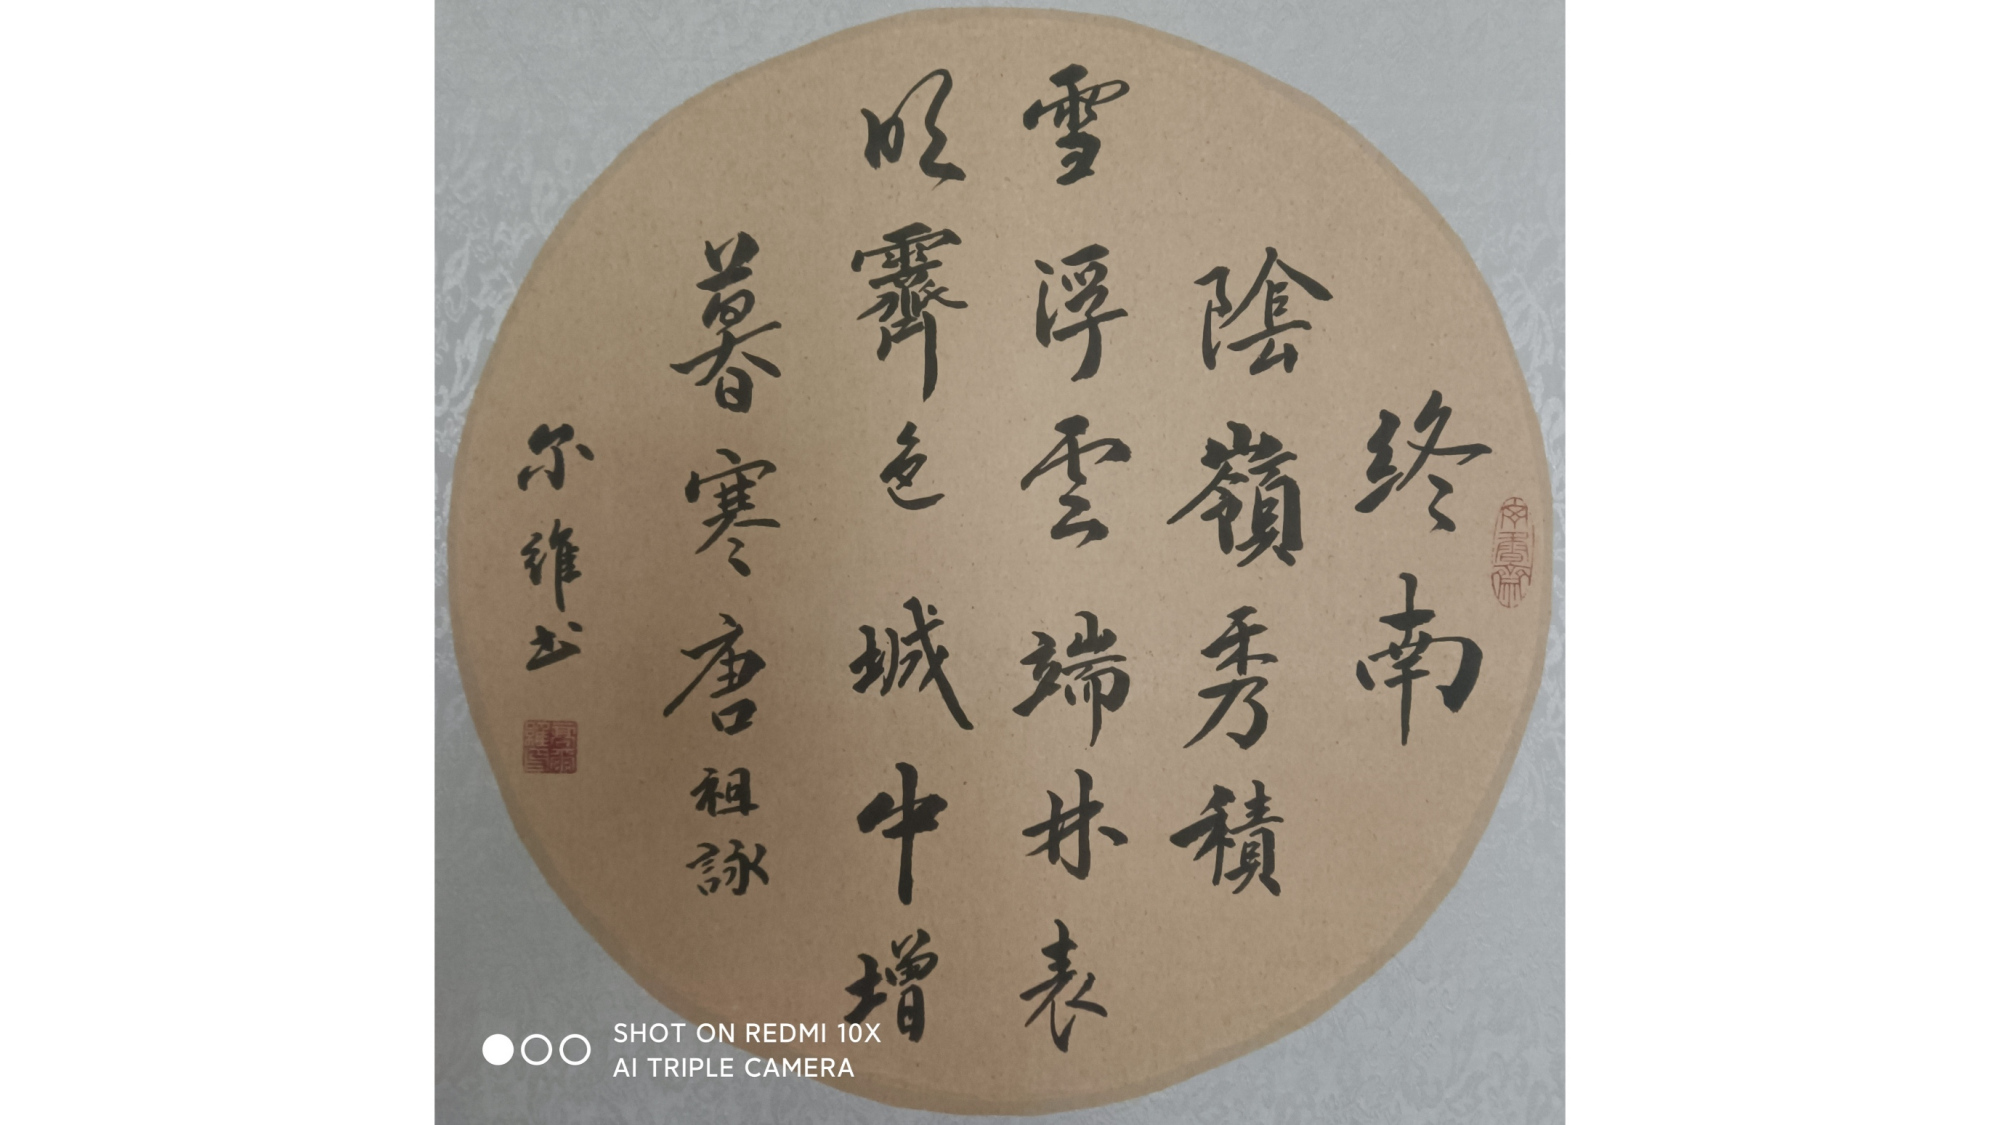 終南
陰嶺秀積
雪浮雲端林表
明霽色城中增
暮寒唐祖詠
尔維书
SHOT ON REDMI 10X
AI TRIPLE CAMERA